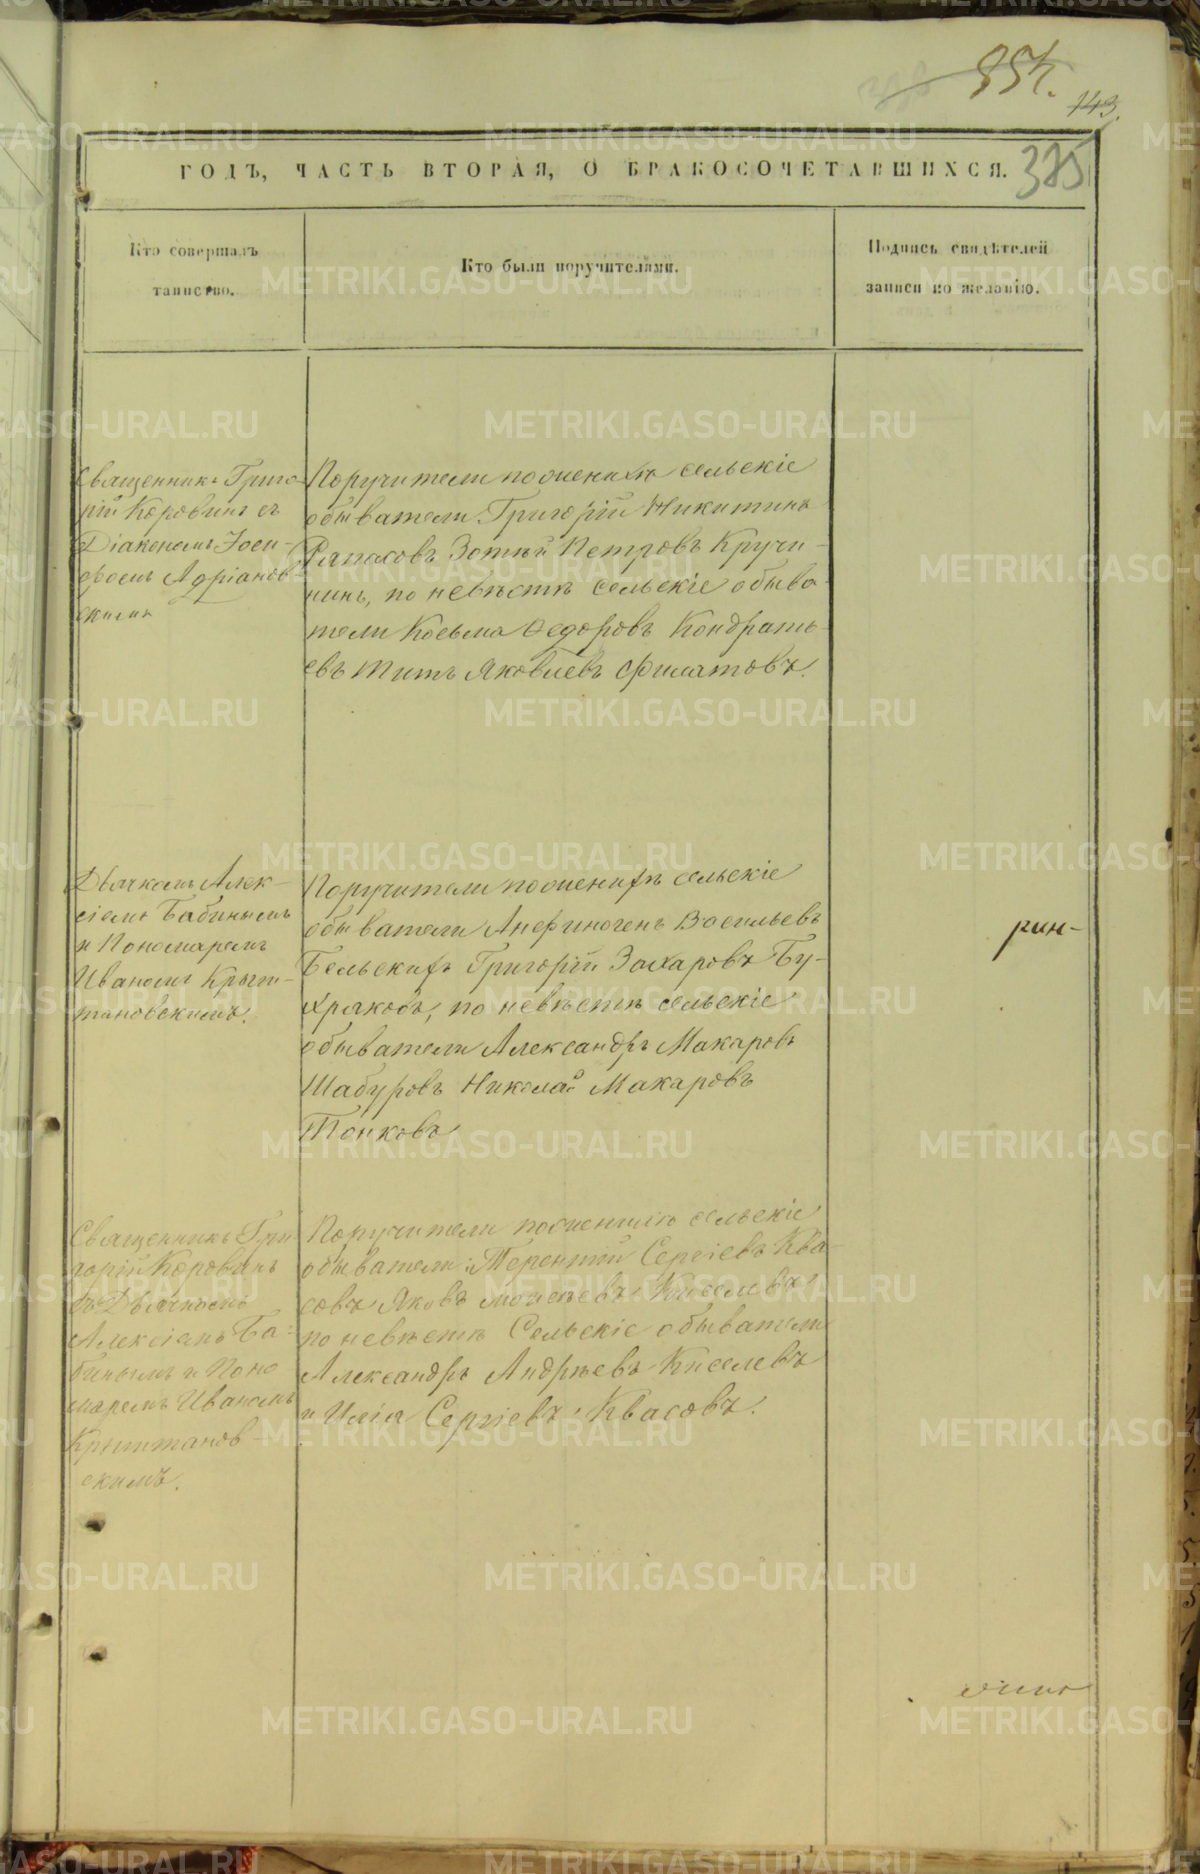 854.
143.
385
ГОДЪ, ЧАСТЬ ВТОРАЯ, О БРАКОСОЧЕТАВШИХСЯ.
Кто совершалъ
таинство.
Кто были поручителями.
Подпись свидѣтелей
записи по желанію.
Священникъ Григо-
рій Коровинъ съ
Діакономъ Іоси-
фомъ Адріанов-
скимъ
Поручители по женихѣ сельскіе
обыватели Григорій Никитинъ
Зотѣй Петровъ Кручи-
нинъ, по невѣстѣ сельскіе обыва-
тели Косьма Ѳедоровъ Кондрать-
евъ Титъ Яковлевъ Филатовъ.
Дьячкомъ Алек-
сіемъ Бабинымъ
и Пономаремъ
Иваномъ Крыш-
тановскимъ.
Поручители по женихѣ сельскіе
обыватели Анфиногенъ Васильевъ
Бельскихъ Григорій Захаровъ Бу-
хряковъ, по невѣстѣ сельскіе
обыватели Александръ Макаровъ
Шабуровъ Николай Макаровъ
Тонковъ
рин-
Священникъ Гри
горій Коровинъ
съ Дьячкомъ
Алексіемъ Ба-
бинымъ и Поно
маремъ Иваномъ
Крыштанов-
скимъ.
Поручители по женихѣ сельскіе
обыватели: Терентій Сергіевъ Ква-
совъ Яковъ Моисѣевъ Киселевъ
по невѣстѣ Сельскіе обыватели
Александръ Андрѣевъ Киселевъ
и Илія Сергіевъ Квасовъ.
METRIKI.GASO-URAL.RU